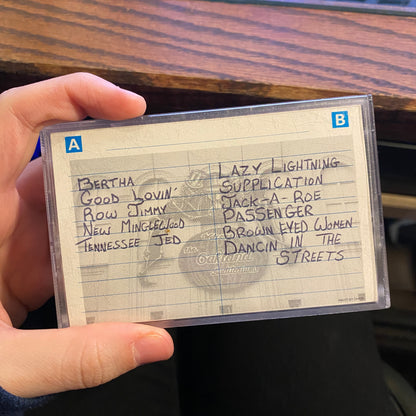 A
B
BERTHA
GOOD LOVIN'
ROW JIMMY
NEW MINGLEWOOD
TENNESSEE JED
LAZY LIGHTNING
SUPPLICATION
JACK-A-ROE
PASSENGER
BROWN EYED WOMEN
DANCIN IN THE
STREETS
the
Oakland